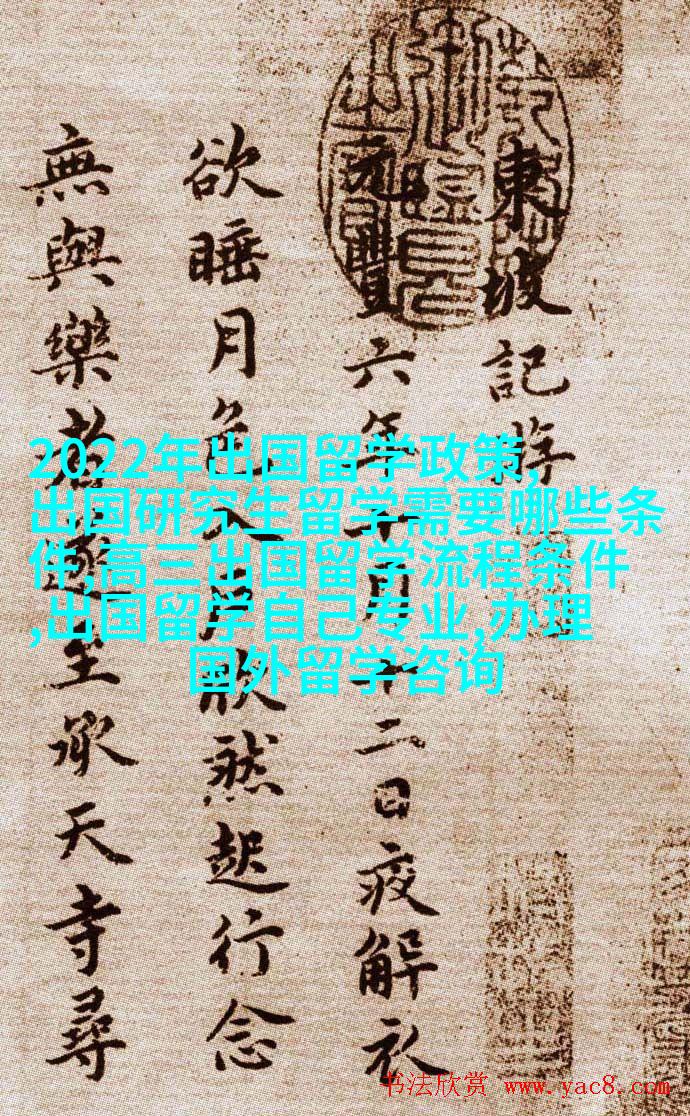 東坡記游
元豐六年十月十二日夜解衣
欲睡月色入戶欣然起行念
無與樂者遂至承天寺尋
2022年出国留学政策,
出国研究生留学需要哪些条
件,高三出国留学流程条件
,出国留学自己专业,办理
国外留学咨询
书法欣赏 www.yac8.com